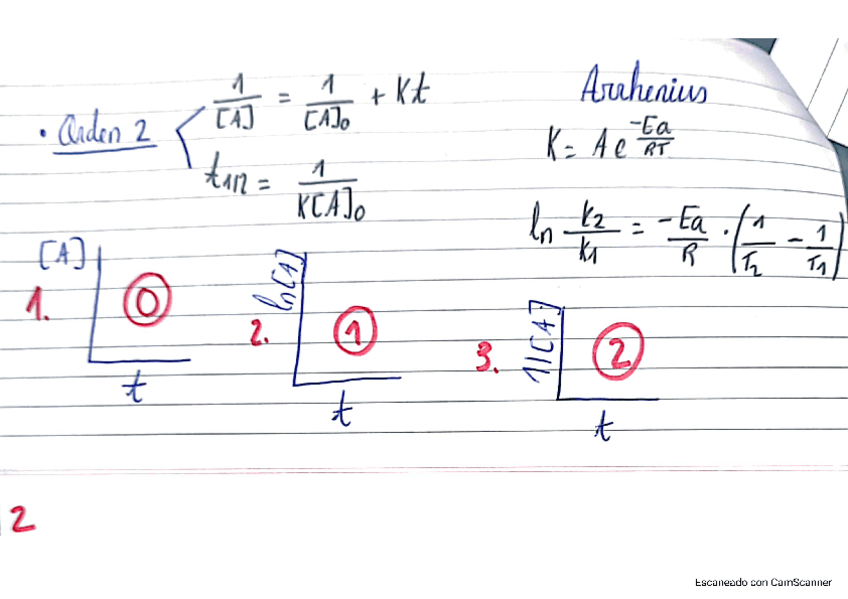 • Orden 2
1/[A] = 1/[A]₀ + Kt
t1/2 = 1/K[A]₀
Arrhenius
K = A e^(-Ea/RT)
ln K2/K1 = -Ea/R · (1/T2 - 1/T1)
1. [A] 0 t
2. ln[A] 1 t
3. 1/[A] 2 t
2
Escaneado con CamScanner